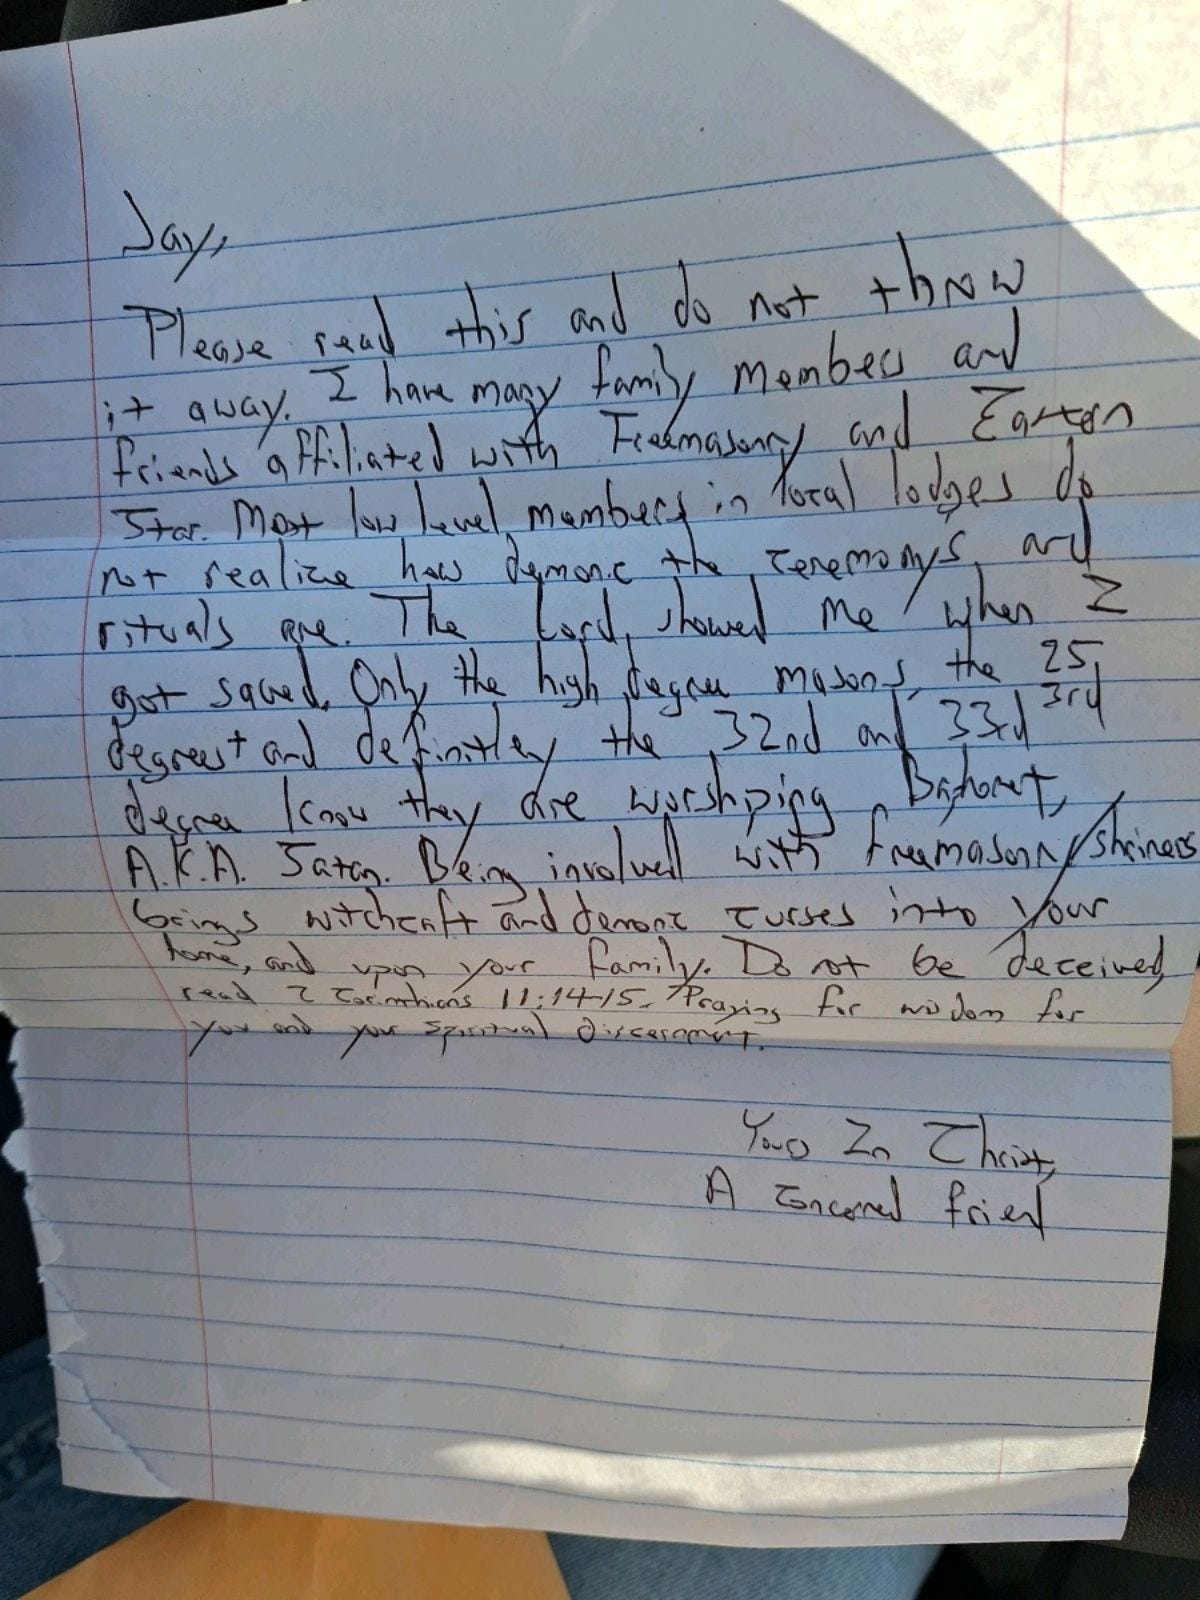 Jay,
Please read this and do not throw
it away. I have many family members and
friends affiliated with Freemasonry and Eastern
Star. Most low level members in local lodges do
not realize how demonic the ceremonys and
rituals are. The Lord showed me when I
got saved. Only the high degree masons, the 25,
3rd
degrees+ and definitley the 32nd and 33rd
degree know they are worshiping Baphomet,
A.K.A. Satan. Being involved with freemasonry/shriners
brings witchcraft and demonic curses into your
home, and upon your family. Do not be deceived,
read 2 Corinthians 11:14-15. Praying for wisdom for
you and your spiritual discernment.
Yours In Christ,
A concerned friend